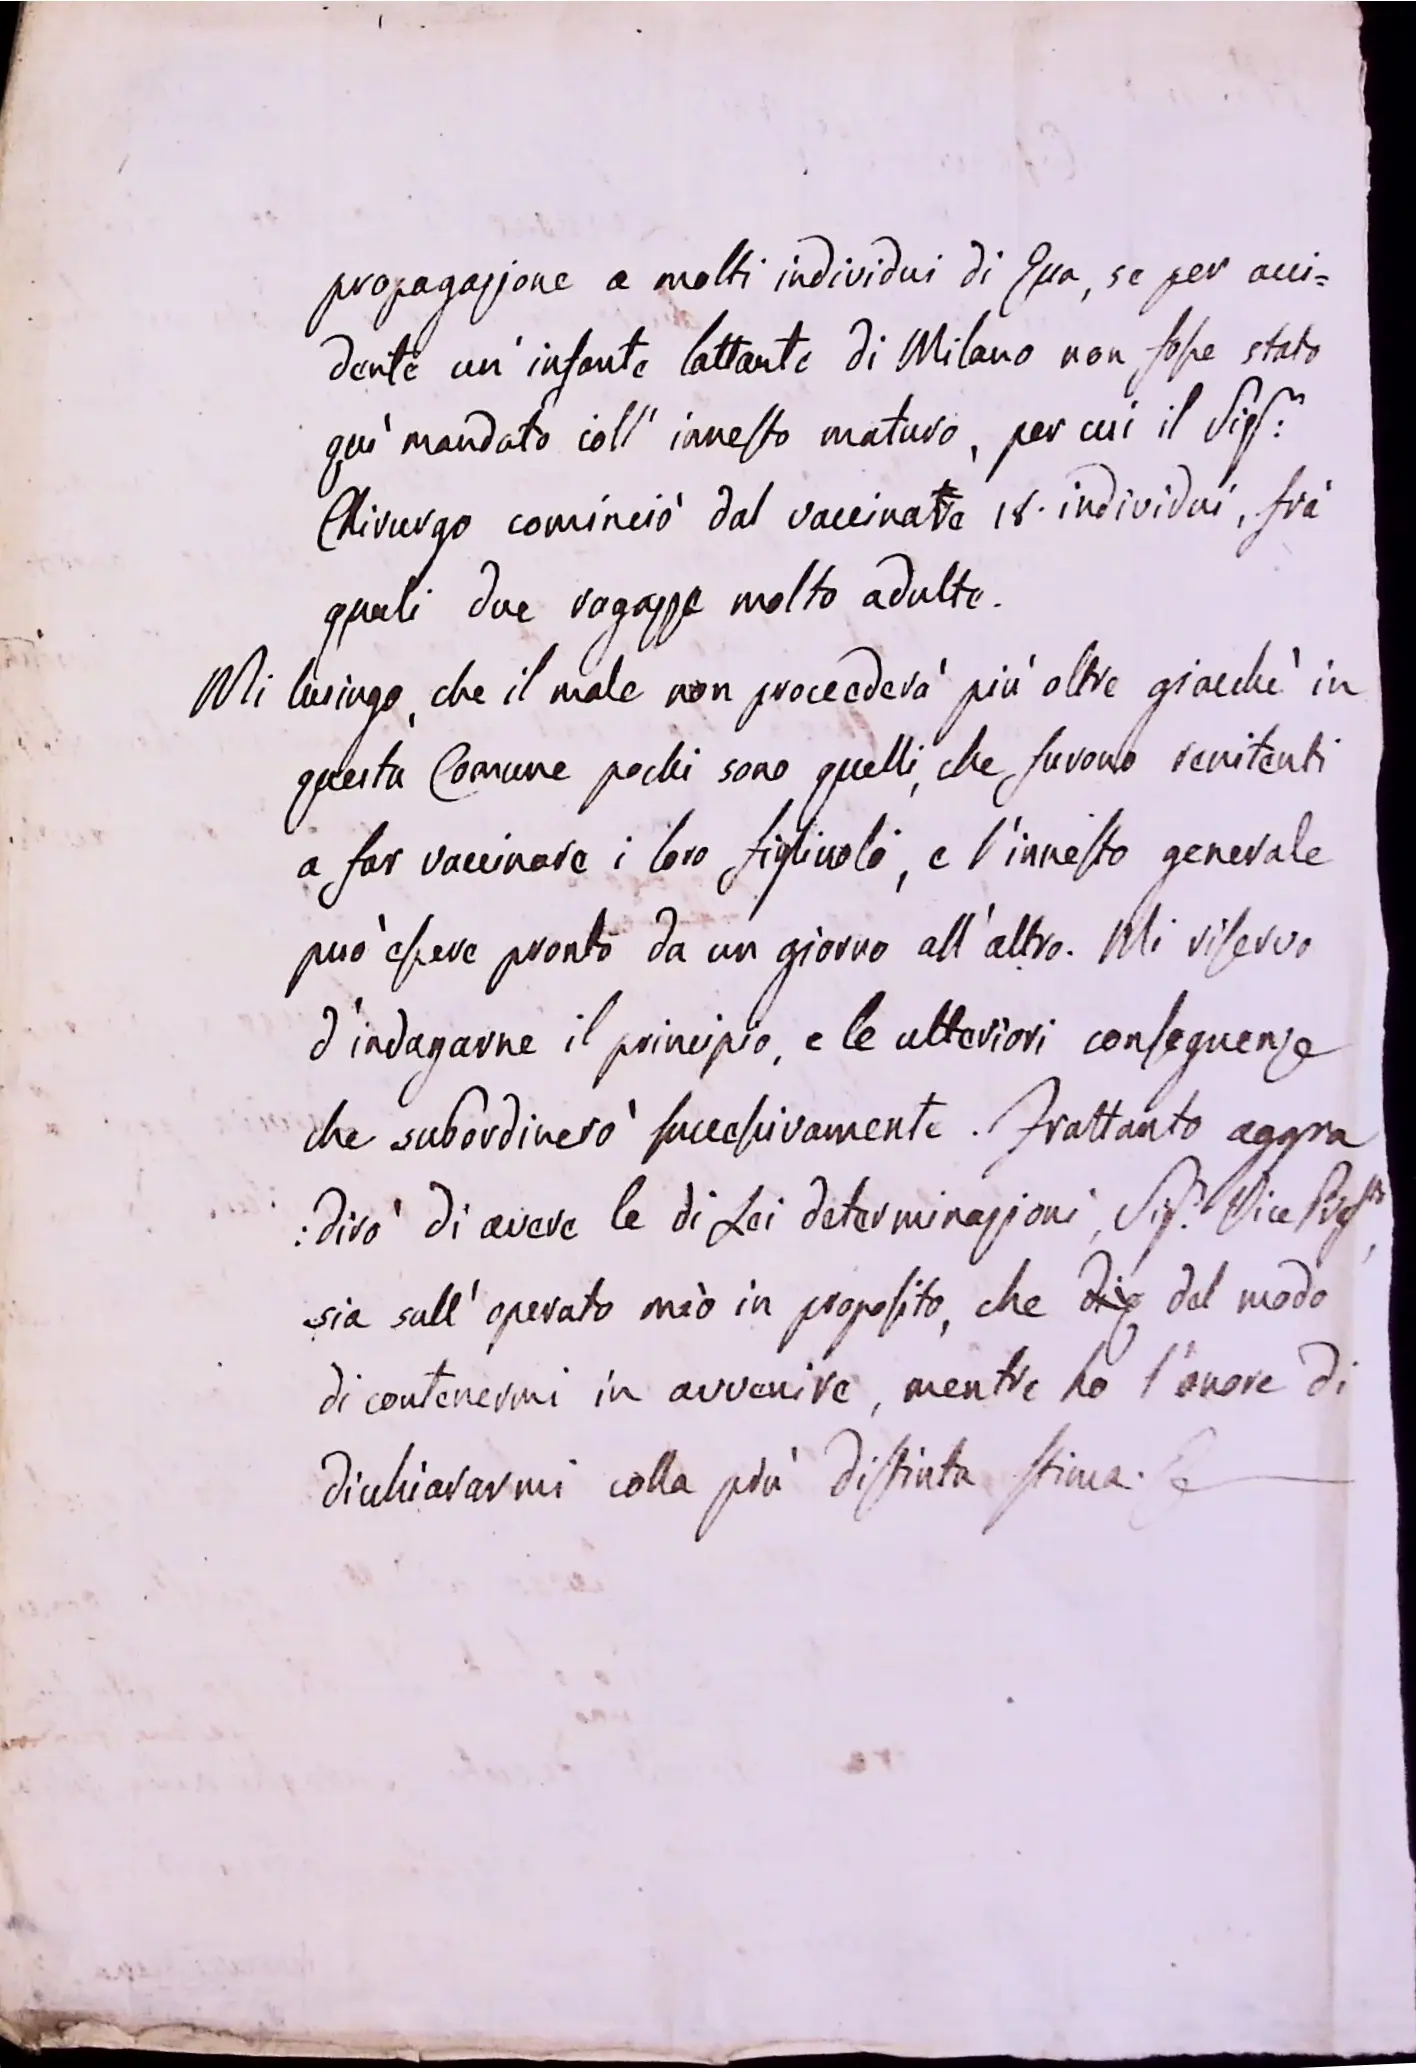 propagazione a molti individui di Qua, se per acci=
dente un' infante lattante di Milano non fosse stato
qui mandato coll' innesto maturo, per cui il Sigr:
Chirurgo cominciò dal vaccinare 18. individui, frà
quali due ragazze molto adulte.
Mi lusingo, che il male non procederà più oltre giacchè in
questa Comune pochi sono quelli, che furono renitenti
a far vaccinare i loro figliuoli, e l'innesto generale
può essere pronto da un giorno all'altro. Mi riservo
d'indagarne il principio, e le ulteriori conseguenze
che subordinerò successivamente. Frattanto aggra
:dirò di avere le di Lei determinazioni, Sigr. Vice Preftto,
sia sull' operato mio in proposito, che del modo
di contenermi in avvenire, mentre ho l'onore di
dichiararmi colla più distinta stima.